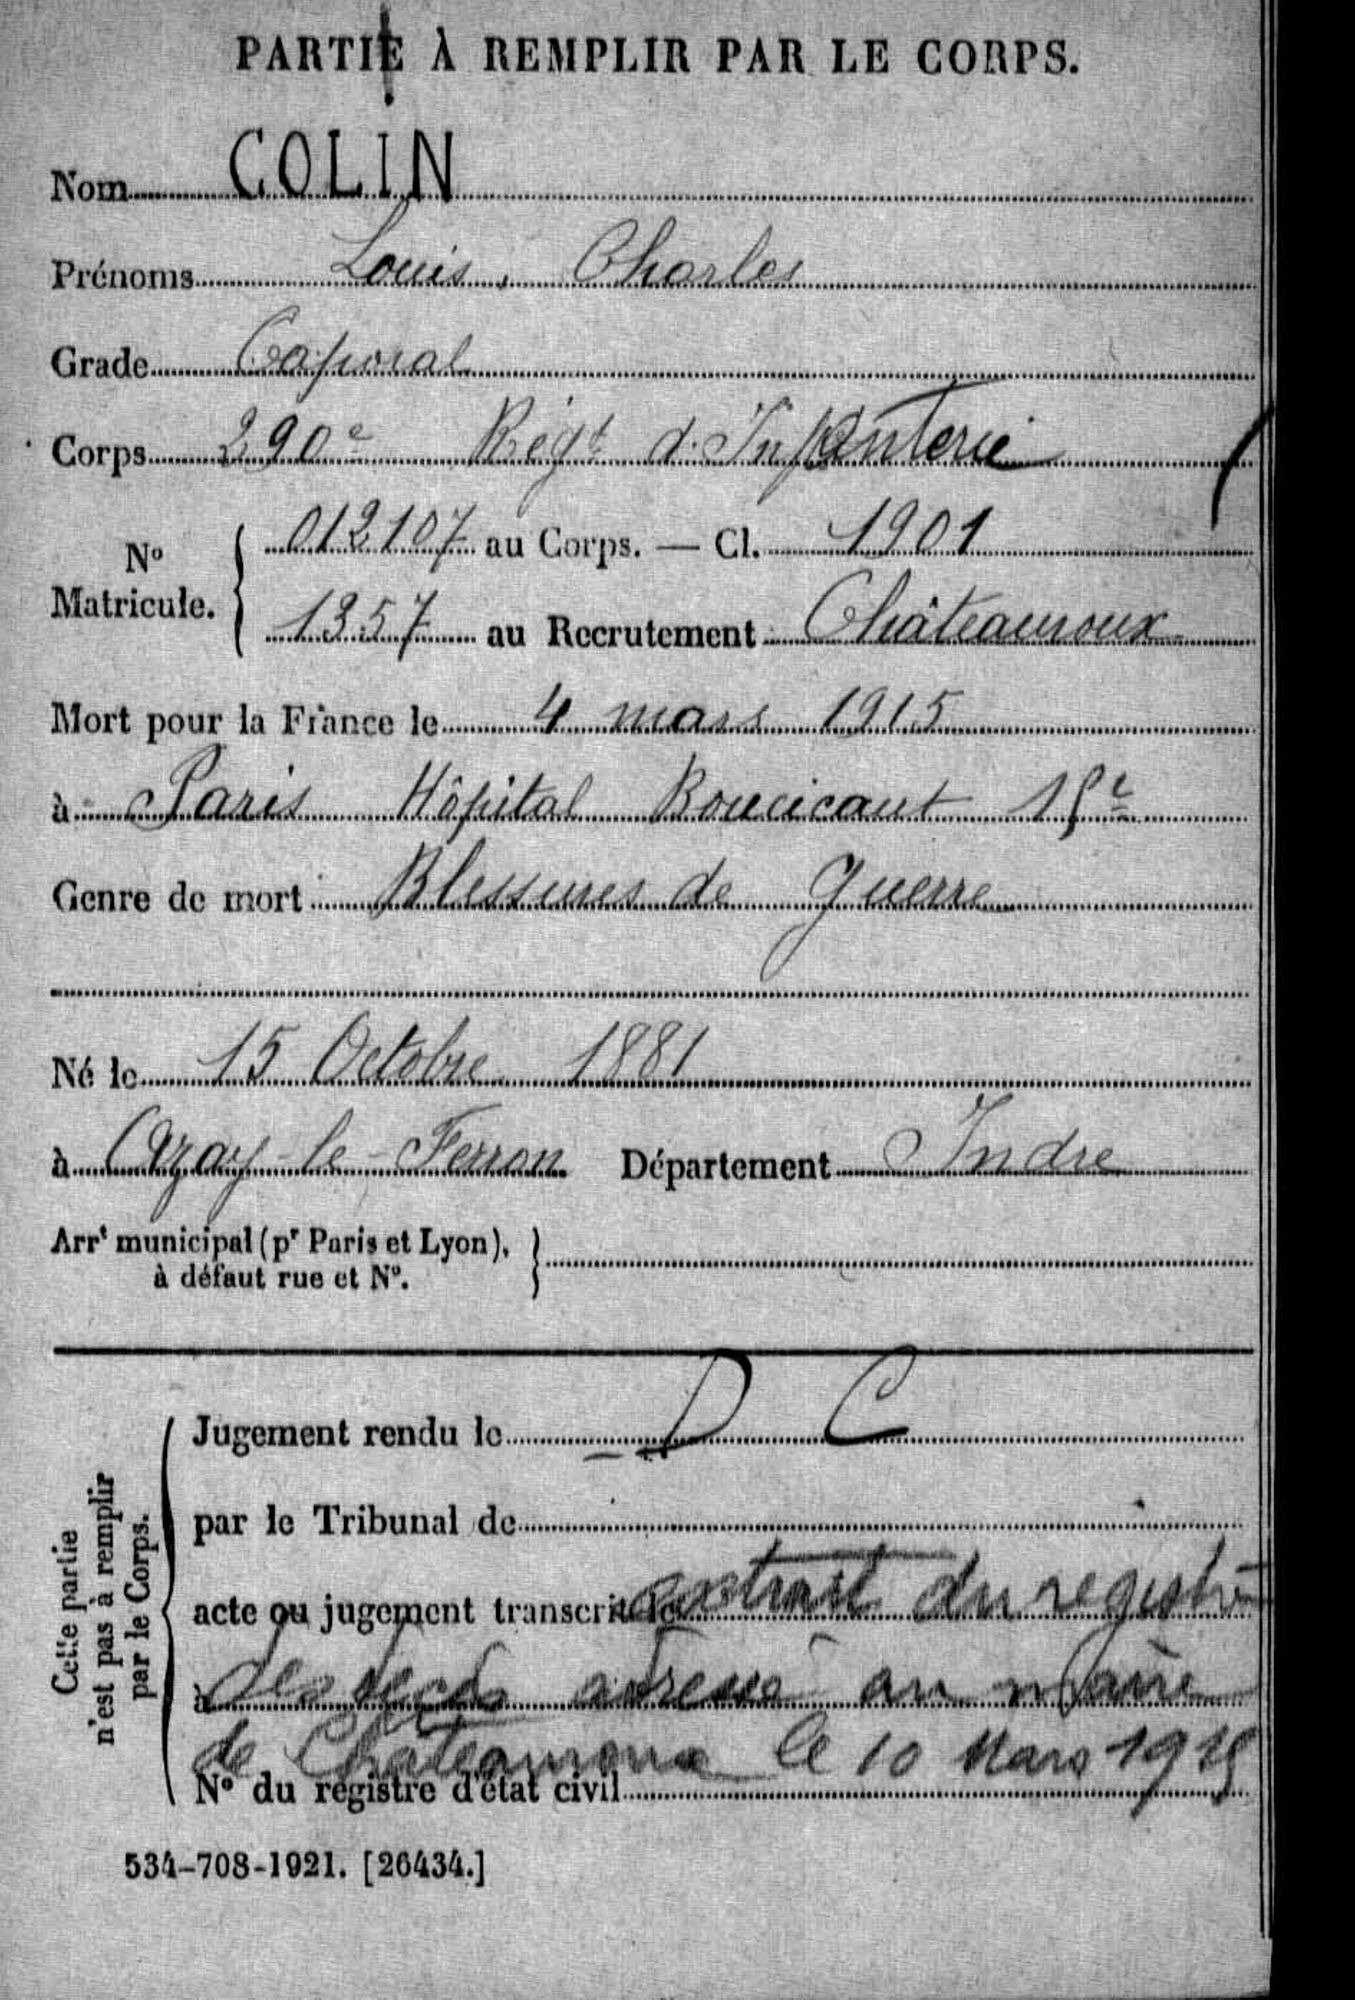 PARTIE À REMPLIR PAR LE CORPS.
Nom COLIN
Prénoms Louis, Charles
Grade Caporal
Corps 290e Régt d'Infanterie
No Matricule. 012107 au Corps. — Cl. 1901
1357 au Recrutement Châteauroux
Mort pour la France le 4 mars 1915
à Paris Hôpital Boucicaut 15e
Genre de mort Blessures de guerre
Né le 15 Octobre 1881
à Azay-le-Ferron Département Indre
Arrt municipal (pr Paris et Lyon), à défaut rue et No.
Cette partie n'est pas à remplir par le Corps.
Jugement rendu le D C
par le Tribunal de
acte ou jugement transcrit le extrait du registre
à des décès adressé au maire
de Chateauroux le 10 Mars 1915
No du registre d'état civil
534-708-1921. [26434.]